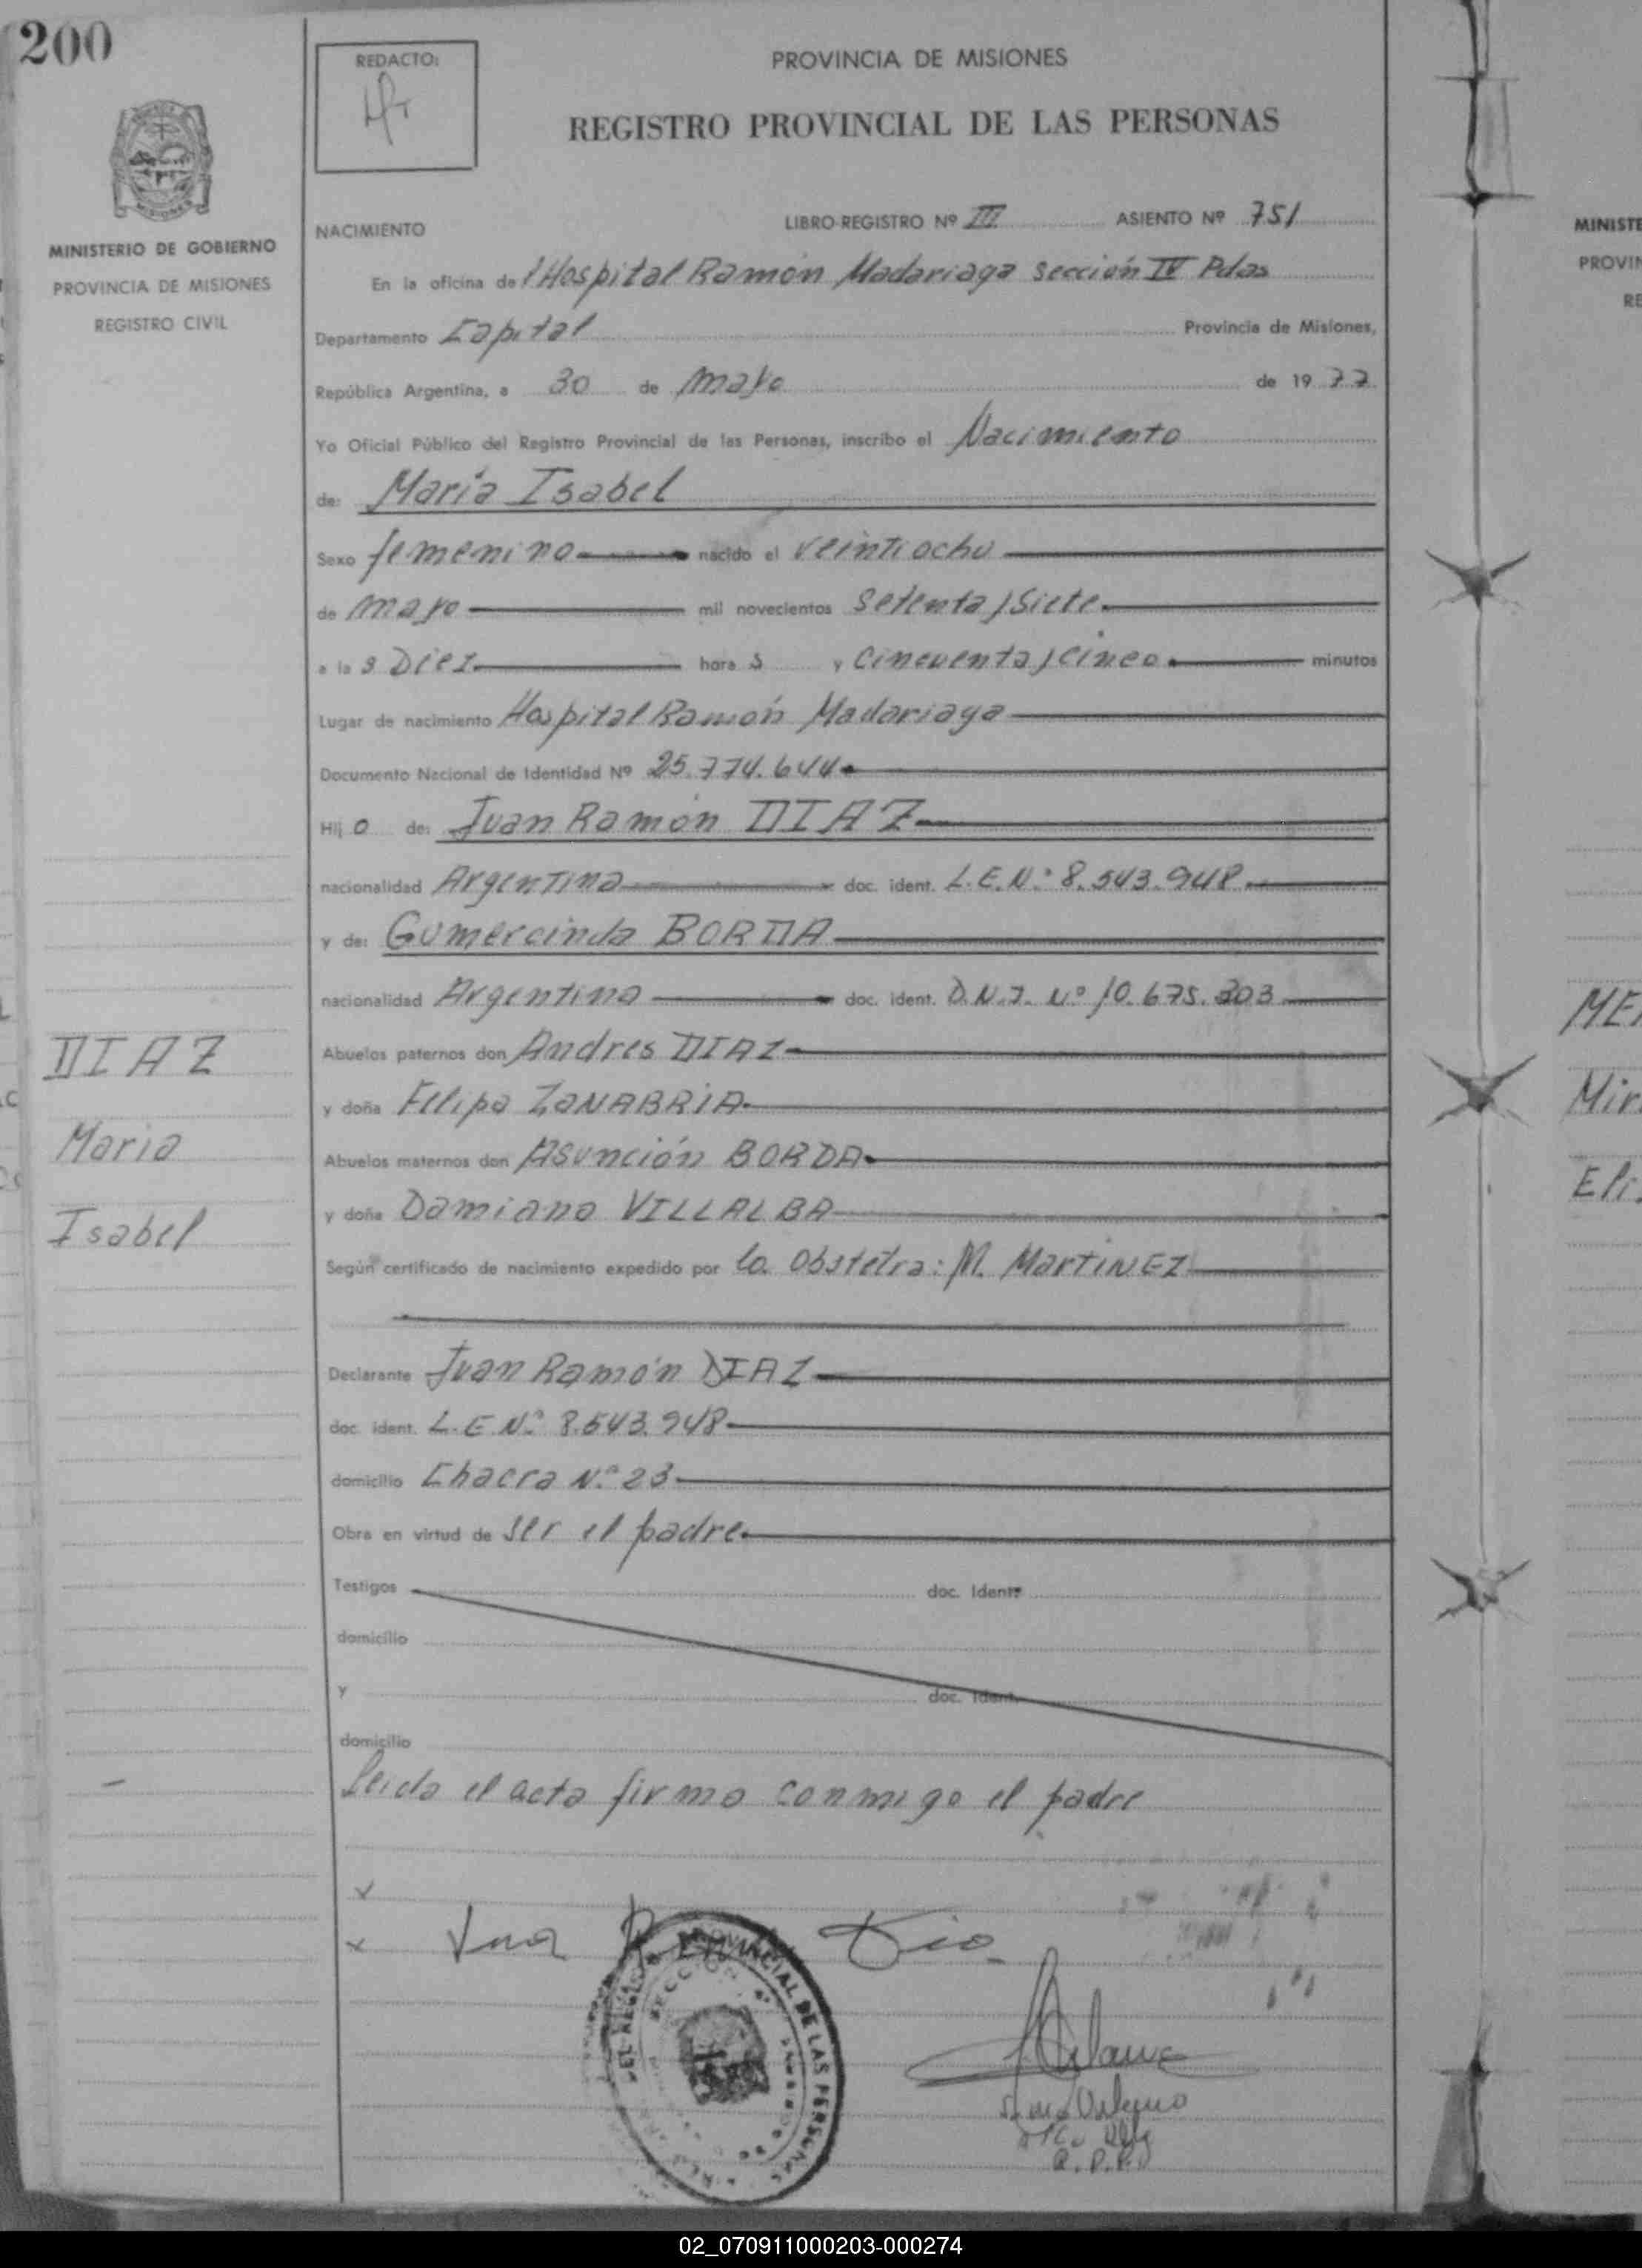 200
REDACTO:
PROVINCIA DE MISIONES
REGISTRO PROVINCIAL DE LAS PERSONAS
MISIONES
MINISTERIO DE GOBIERNO
PROVINCIA DE MISIONES
REGISTRO CIVIL
NACIMIENTO LIBRO-REGISTRO Nº III ASIENTO Nº 751
En la oficina del Hospital Ramón Madariaga sección IV Pdas
Departamento Capital Provincia de Misiones,
República Argentina, a 30 de mayo de 19 77
Yo Oficial Público del Registro Provincial de las Personas, inscribo el Nacimiento
de: María Isabel
Sexo femenino nacido el veintiocho
de mayo mil novecientos setenta y siete
a la s Diez hora s y cincuenta y cinco minutos
Lugar de nacimiento Hospital Ramón Madariaga
Documento Nacional de Identidad Nº 25.774.644
Hij o de: Juan Ramón DIAZ
nacionalidad Argentina doc. ident. L.E.N.º 8.543.948
y de: Gumercinda BORDA
nacionalidad Argentina doc. ident. D.N.I. Nº 10.675.303
Abuelos paternos don Andres DIAZ
y doña Felipa ZANABRIA
Abuelos maternos don Asunción BORDA
y doña Damiana VILLALBA
Según certificado de nacimiento expedido por la Obstetra: M. MARTINEZ
Declarante Juan Ramón DIAZ
doc. ident. L.E Nº 8.543.948
domicilio Chacra N.º 23
Obra en virtud de ser el padre
Testigos doc. Ident
domicilio
y doc. Ident.
domicilio
Leida el acta firma conmigo el padre
DIAZ
Maria
Isabel
Juan R. Dia
PROVINCIAL DE LAS PERSONAS
SECCION
MINISTE
PROVIN
RE
Mir
Eli
02_070911000203-000274